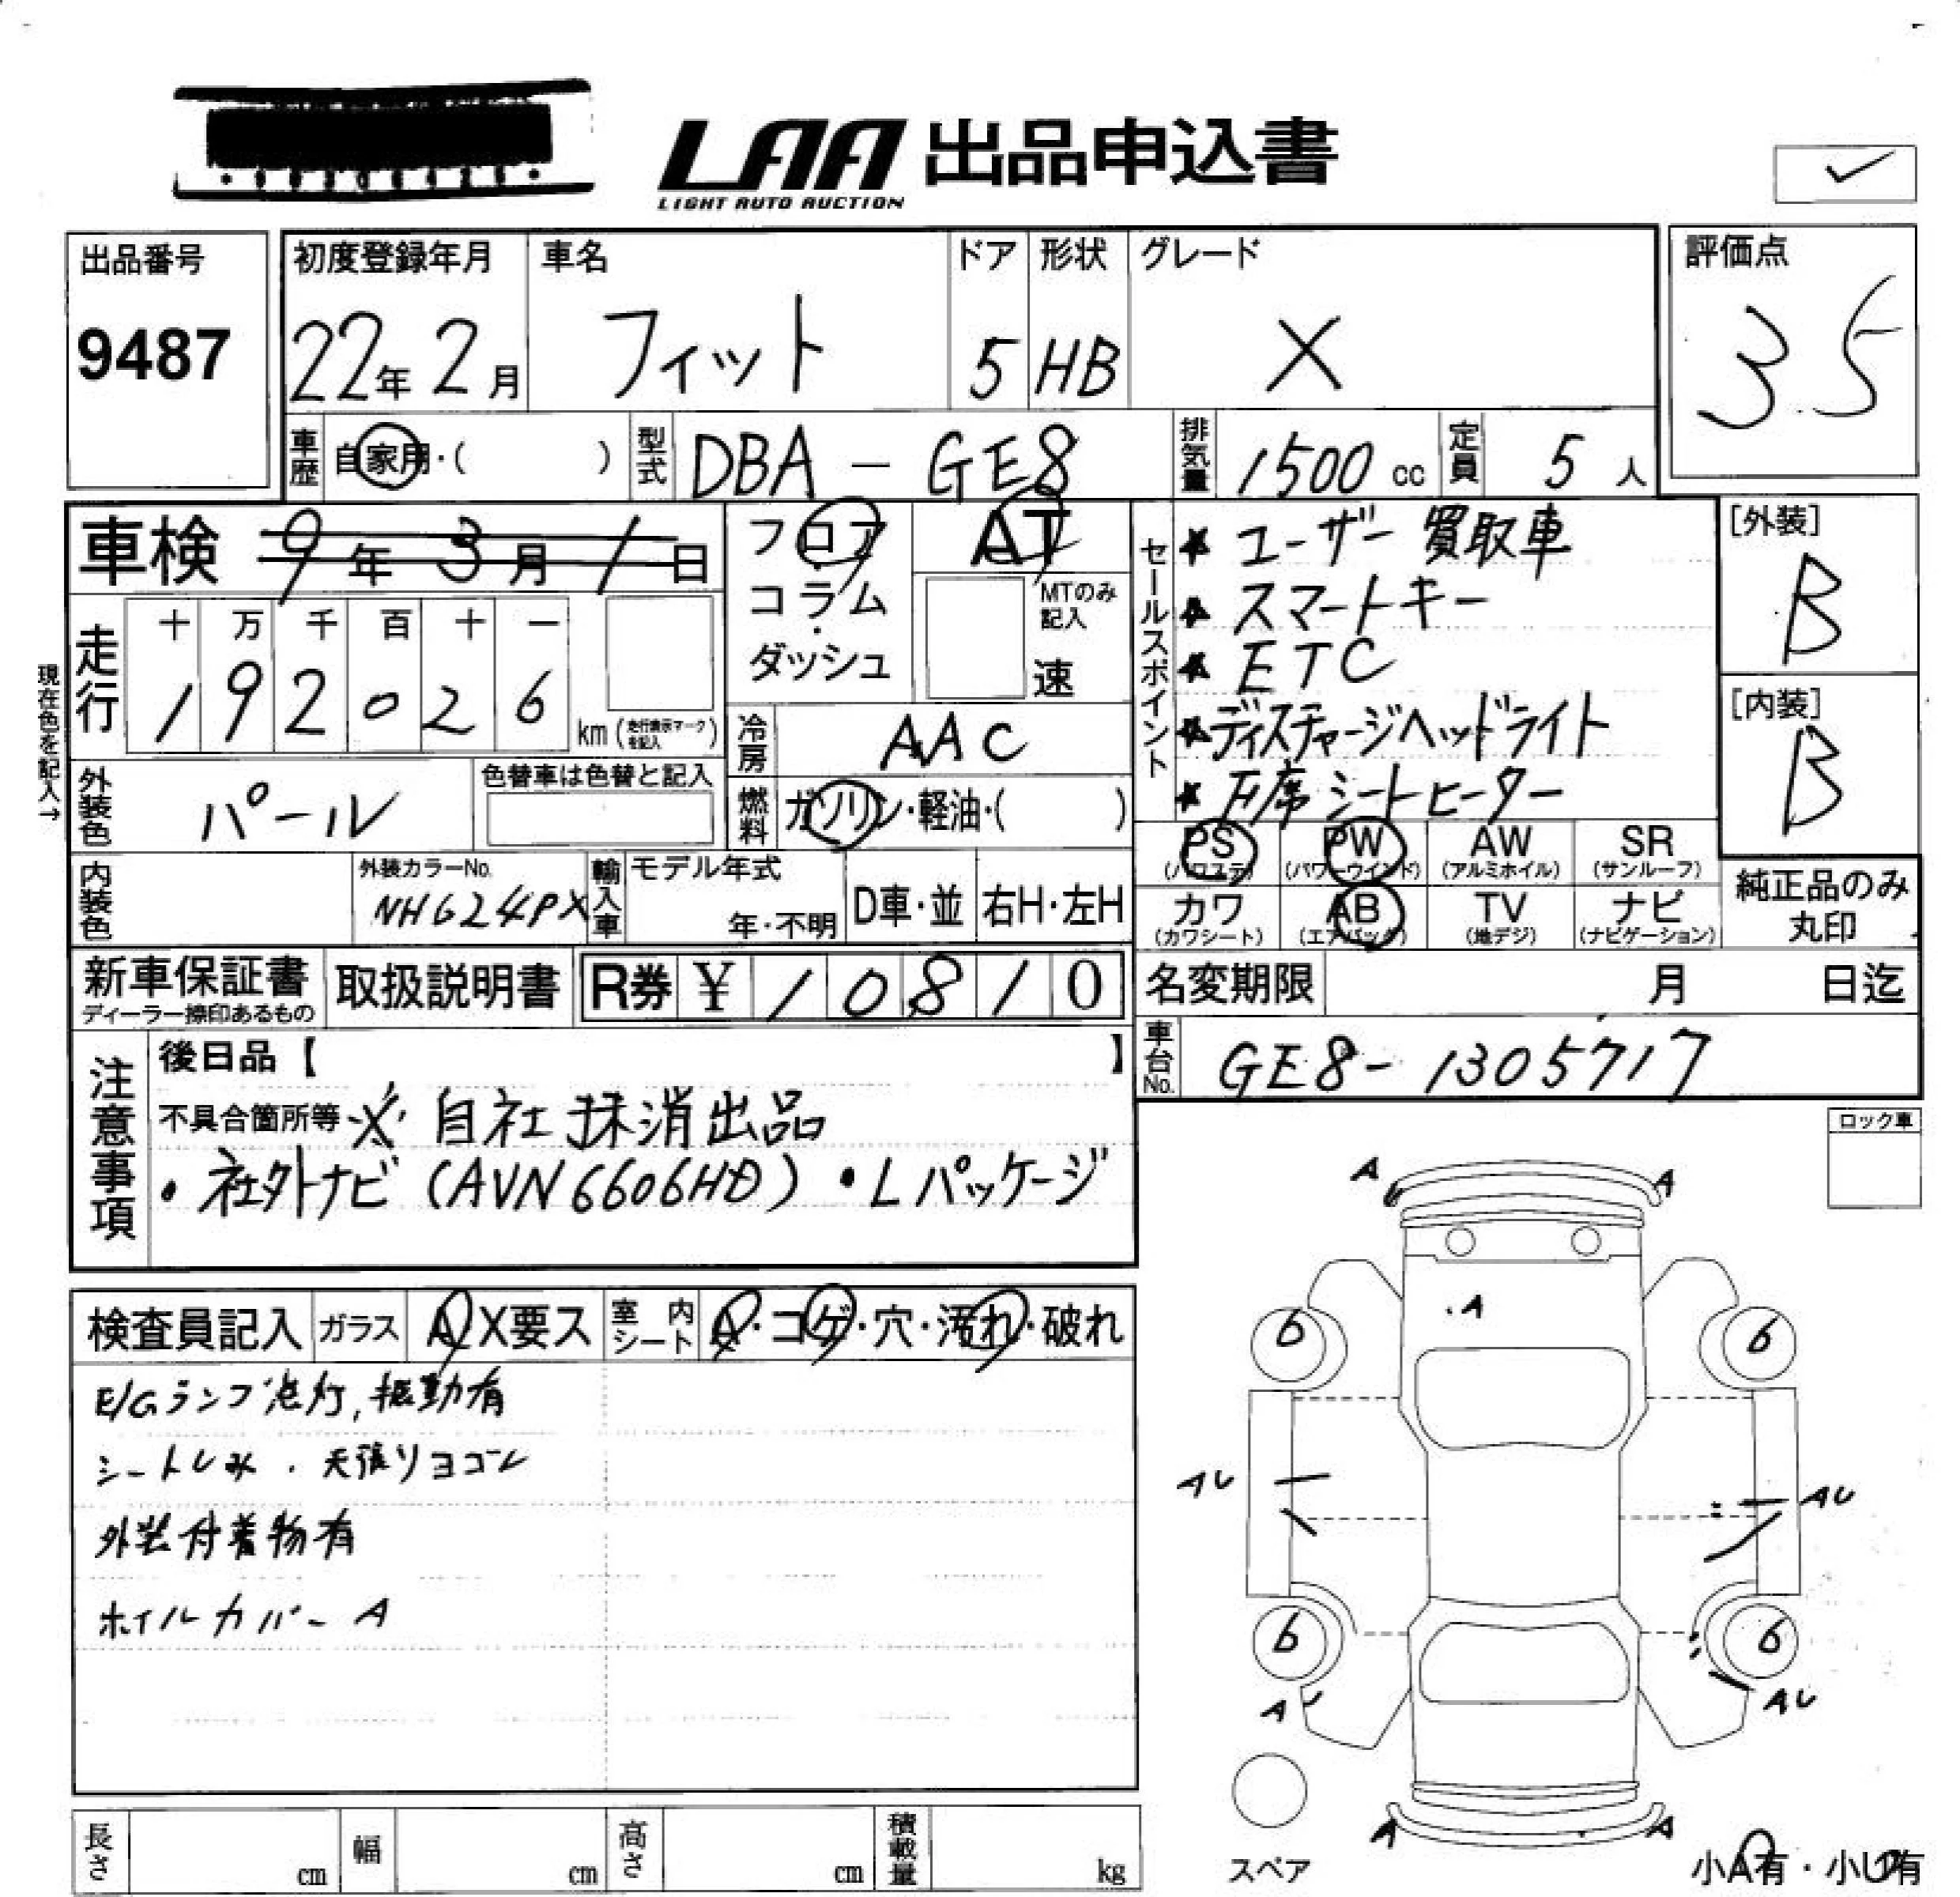 LAA 出品申込書
LIGHT AUTO AUCTION
出品番号
9487
初度登録年月
22年 2月
車名
フィット
ドア
5
形状
HB
グレード
X
評価点
3.5
車歴 自家用・( )
型式 DBA - GE8
排気量 1500 cc
定員 5 人
車検 9年 3月 1日
フロア
コラム
・
ダッシュ
AT
MTのみ記入
速
セールスポイント
★ ユーザー買取車
★ スマートキー
★ ETC
★ ディスチャージヘッドライト
★ 席シートヒーター
[外装]
B
[内装]
B
現在色を記入→
走行
十 万 千 百 十 一
1 9 2 0 2 6 km (走行表示マークを記入)
冷房 AAC
外装色 パール
色替車は色替と記入
燃料 ガソリン・軽油・( )
PS AW SR
PW
(パワステ) (パワーウインド) (アルミホイル) (サンルーフ)
カワ AB TV ナビ
(カワシート) (エアバッグ) (地デジ) (ナビゲーション)
純正品のみ
丸印
内装色
外装カラーNo.
NH624PX
輸入車
モデル年式
年・不明
D車・並
右H・左H
新車保証書
ディーラー捺印あるもの
取扱説明書
R券 ¥ 1 0 8 1 0
名変期限 月 日迄
車台No. GE8-1305717
注意事項
後日品【 】
不具合箇所等 ※ 自社抹消出品
・社外ナビ (AVN6606HD) ・Lパッケージ
ロック車
検査員記入 ガラス A X要ス 室内シート A・コゲ・穴・汚れ・破れ
E/Gランプ点灯, 振動有
シートしみ . 天張リヨゴレ
外装付着物有
ホイルカバー A
A A
A
6 6
AU AU
6 6
A AU
A A
スペア
小A有・小U有
長さ cm
幅 cm
高さ cm
積載量 kg